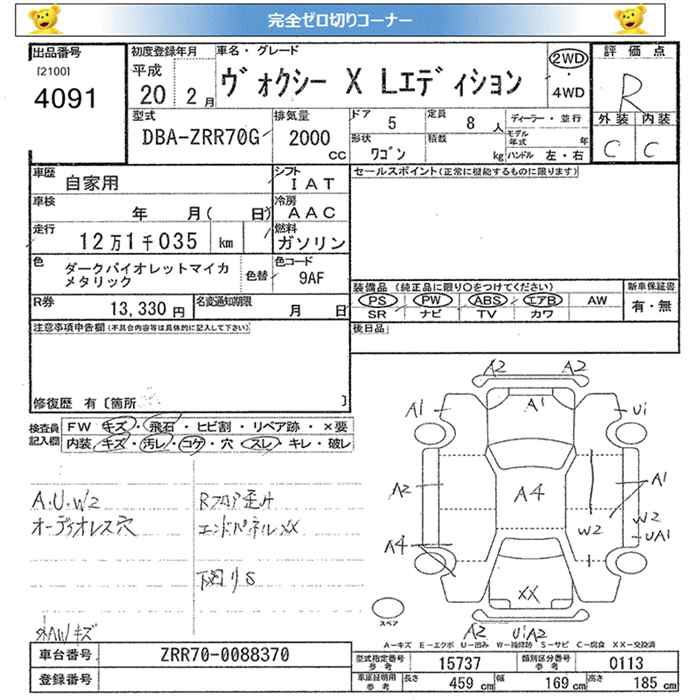 完全ゼロ切りコーナー
出品番号
[2100]
4091
初度登録年月
平成
20 2月
車名・グレード
ヴォクシー X Lエディション
2WD
4WD
評価点
R
外装 内装
C C
型式
DBA-ZRR70G
排気量
2000
CC
ドア
5
定員
8 人
形状
ワゴン
積載
kg
ディーラー・並行
モデル年式 年
ハンドル 左・右
車歴
自家用
シフト
IAT
セールスポイント(正常に機能するものに限ります)
車検
年 月( 日)
冷房
AAC
走行
12万1千035 km
燃料
ガソリン
色
ダークバイオレットマイカ
メタリック
色替
色コード
9AF
装備品 (純正品に限り○をつけてください)
PS PW ABS エアB AW
SR ナビ TV カワ
新車保証書
有・無
R券
13,330円
名変通知期限
月 日
後日品
注意事項申告欄(不具合内容等は具体的に記入して下さい)
修復歴 有〔箇所 〕
検査員
記入欄
FW キズ・飛石・ヒビ割・リペア跡・×要
内装 キズ・汚レ・コゲ・穴・スレ・キレ・破レ
A.U.W2
オーディオレス穴
外AWキズ
Rフロア歪ミ
エンドパネルXX
下回りS
A2 A2
A1
A1
U1
A2
A4
A1
W2
W2
UA1
A4
XX
A2
U1A2
スペア
A－キズ E－エクボ U－凹み W－補修跡 S－サビ C－腐食 XX－交換済
車台番号
ZRR70-0088370
登録番号
型式指定番号
参考
15737
類別区分番号
参考
0113
車庫証明用
参考
長さ
459 cm
幅
169 cm
高さ
185 cm